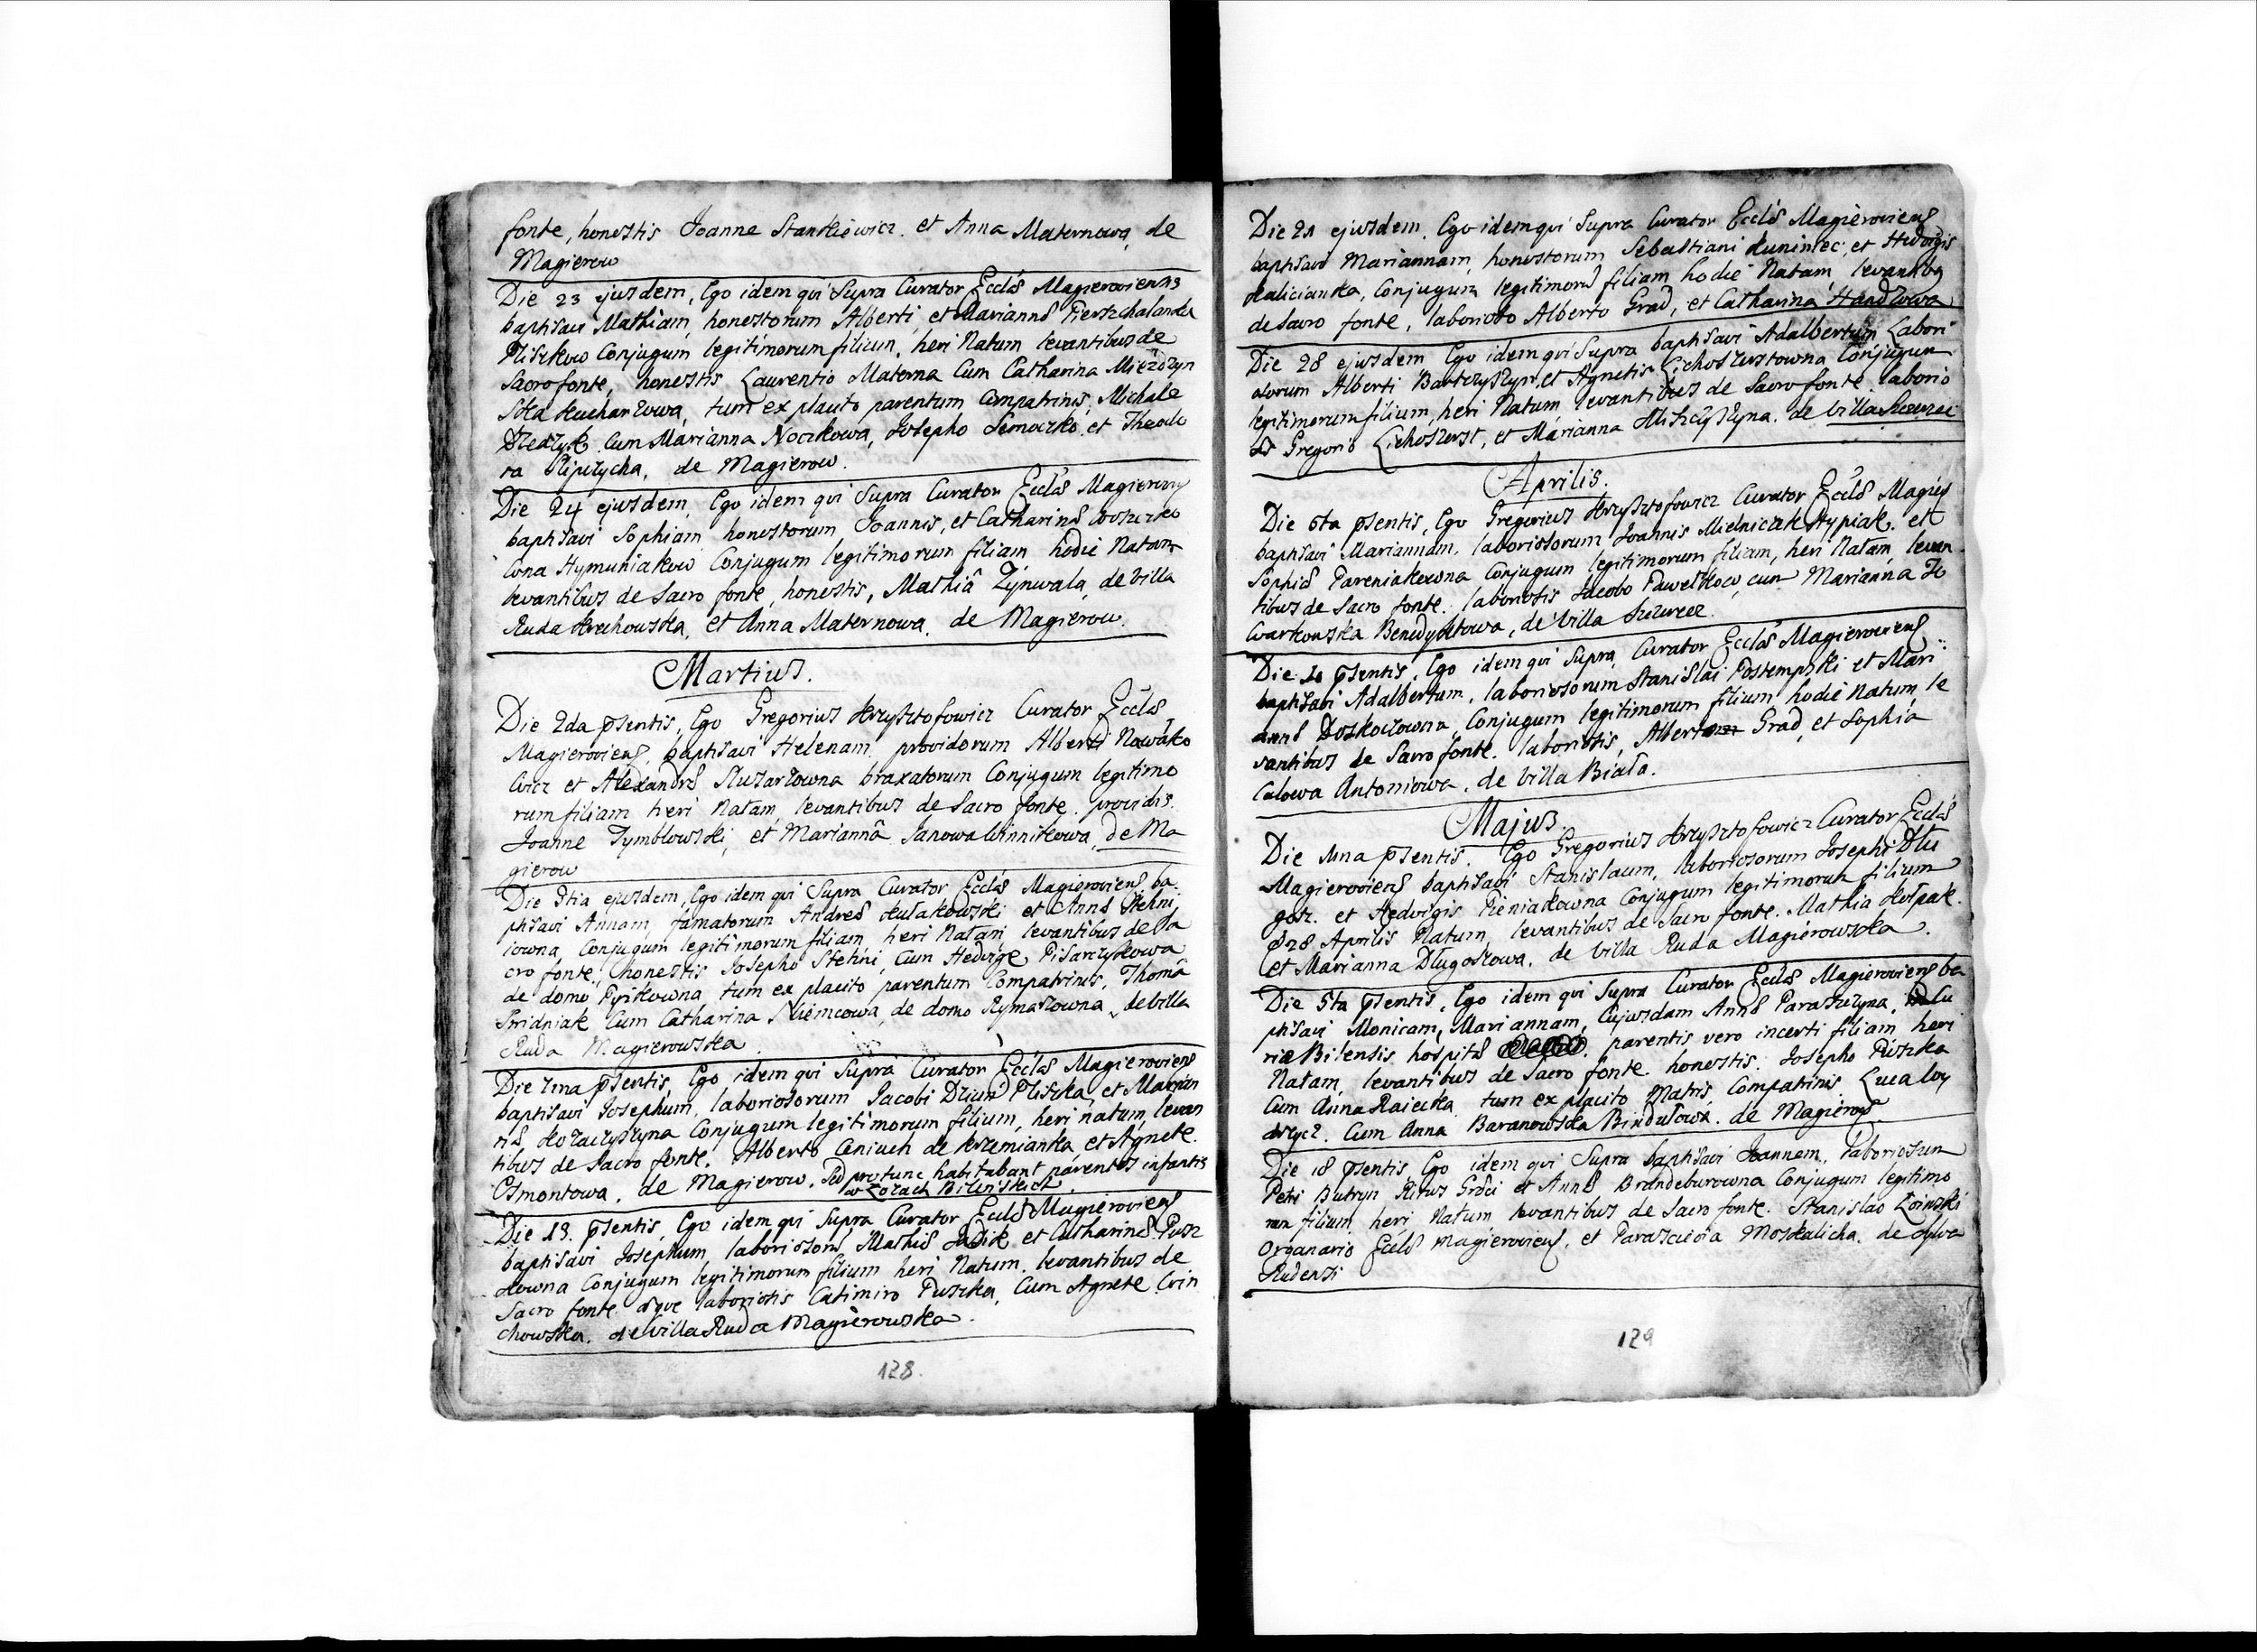 fonte, honestis Joanne Stankiewicz. et Anna Maternowa, de
Magierow
Die 23 ejusdem, Ego idem qui Supra Curator Eccl̃æ Magieroviensis
baptisavi Mathiam, honestorum Alberti, et Mariannæ
Pliszkow Conjugum legitimorum filium, heri Natum levantibus de
Sacro fonte, honestis Laurentio Materna Cum Catharina
Kucharzowa, tum ex placito parentum Compatrinis, Michale
Cum Marianna Noczkowa, Josepho et Theodo
ra de Magierow.
Die 24 ejusdem, Ego idem qui Supra Curator Eccl̃æ Magierovień
baptisavi Sophiam honestorum Joannis, et Catharinæ
wna Hymuniakow Conjugum legitimorum filiam hodie Natam
levantibus de Sacro fonte, honestis, Mathiâ Zynwala, de Villa
Ruda Krechowska, et Anna Maternowa. de Magierow.
Martius.
Die 2da pñsentis, Ego Gregorius Krzysztofowicz Curator Eccl̃æ
Magierovieñs, baptisavi Helenam, providorum Alberti Nowako
wicz et Alexandræ Slusarzowna braxatorum Conjugum legitimo
rum filiam heri Natam, levantibus de Sacro fonte. providis.
Joanne Tymblowski, et Mariannâ Janowa Winnikowa, de Ma
gierow
Die 3tia ejusdem, Ego idem qui Supra Curator Eccl̃æ Magierovieñs ba
ptisavi Annam, famatorum Andreæ Kułakowski et Annæ Stehni
iowna, Conjugum legitimorum filiam, heri Natam levantibus de Sa
cro fonte, honestis Josepho Stehni, Cum Hedvige Pisarczykowa
de domo tum ex placito parentum Compatrinis, Thomâ
Sridniak Cum Catharina Niemcowa, de domo Rymarzowna, de Villa
Ruda Magierowska
Die 7ma pñsentis, Ego idem qui Supra Curator Eccl̃æ Magierovieñs
baptisavi Josephum, laboriosorum Jacobi Dziun Pliszka, et Marian
næ, Kozaczyszyna Conjugum legitimorum filium, heri natum, levan
tibus de Sacro fonte. Alberto Ceniuch de Krzemianka, et Agnete.
Osmontowa. de Magierow. Sed pro tunc habitabant parentes infantis
w Łozach Bilinskich.
Die 13. pñsentis, Ego idem qui Supra Curator Eccl̃æ Magierovieñs
baptisavi Josephum, laboriosorũ Mathiæ Sudik et Catharinæ Pusz
kowna Conjugum legitimorum filium heri Natum. levantibus de
Sacro fonte. laboriosis Casimiro Puszka, Cum Agnete Win
chowska. de Villa Ruda Magierowska.
128.
Die 21 ejusdem. Ego idem qui Supra Curator Eccl̃æ Magierovieñs
baptisavi Mariannam, honestorum Sebastiani Kuniniec, et Hedvigis
Kalicianka, Conjugum legitimorũ filiam, hodie Natam, levantibꝫ
de Sacro fonte, laborioso Alberto Grad, et Catharina Handzowa
Die 28 ejusdem Ego idem qui Supra baptisavi Adalbertum Labori
osorum Alberti Bartczyszyn, et Agnetis Lichoszerstowna Conjugum
legitimorum filium, heri Natum levantibus de Sacro fonte. laborio
sis Gregorio Lichoszerst, et Marianna de Villa
Aprilis.
Die 6ta pñsentis, Ego Gregorius Krzysztofowicz Curator Eccl̃æ Magie
baptisavi Mariannam, laboriosorum Joannis Mielniczek Hypiak. et
Sophiæ Pareniakowna Conjugum legitimorum filiam, heri Natam, levan
tibus de Sacro fonte. laboriosis Jacobo Pawełkow, cum Marianna
warkowska Benedyktowa, de Villa Szczerzec.
Die 10 pñsentis, Ego idem qui Supra, Curator Eccl̃æ Magierovieñs
baptisavi Adalbertum, laboriosorum Stanislai Postempski et Mari
annæ Doskoczowna, Conjugum legitimorum filium, hodie Natum, le
vantibus de Sacro fonte. laboriosis, Alberto Grad, et Sophia
Calowa Antoniowa. de Villa Biała.
Majus.
Die 1ma pñsentis. Ego Gregorius Krzysztofowicz Curator Eccl̃æ
Magierovieñs baptisavi Stanislaum, laboriosorum Josephi Dłu
gosz. et Hedvigis Pieniakowna Conjugum legitimorum filium
d 28 Aprilis Natum, levantibus de Sacro fonte. Mathia Kołpak.
et Marianna Długoszowa. de Villa Ruda Magierowska.
Die 5ta pñsentis, Ego idem qui Supra Curator Eccl̃æ Magierovieñs ba
ptisavi Monicam, Mariannam, Cujusdam Annæ Paraszczyna,
riæ Bilensis hospitæ parentis vero incerti filiam heri
Natam, levantibus de Sacro fonte. honestis. Josepho Puszka
Cum Anna Raiecka tum ex placito Matris, Compatrinis Luca
Cum Anna Baranowska Bindułowa. de Magierow.
Die 18 pñsentis, Ego idem qui Supra baptisavi Joannem, laboriosum
Petri Butryn Ritus Græci et Annæ Brandeburowna Conjugum legitimo
rum filium heri Natum levantibus de Sacro fonte. Stanislao Łoinski
Organario Eccl̃æ Magierovieñs. et Parascievia Moskalicha. de Sylva
Rudensi
129